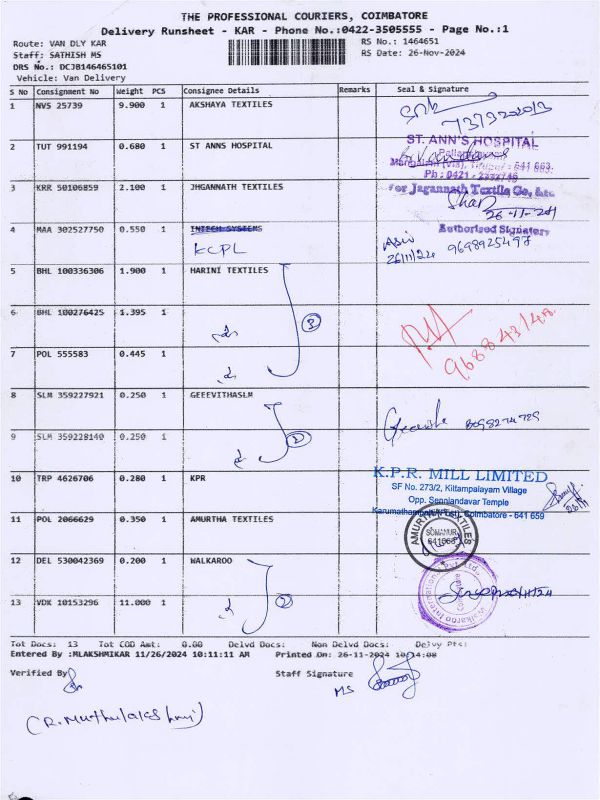 THE PROFESSIONAL COURIERS, COIMBATORE
Delivery Runsheet - KAR - Phone No.:0422-3505555 - Page No.:1
Route: VAN DLY KAR
RS No.: 1464651
Staff: SATHISH MS
RS Date: 26-Nov-2024
DRS No.: DCJB146465101
Vehicle: Van Delivery
S No Consignment No Weight PCS Consignee Details Remarks Seal & Signature
1 NVS 25739 9.900 1 AKSHAYA TEXTILES
2 TUT 991194 0.680 1 ST ANNS HOSPITAL
ST. ANN'S HOSPITAL
641 663.
Ph : 0421 -
3 KRR 50106859 2.100 1 JHGANNATH TEXTILES
for Jagannath Textile Co.,
26-11-24
Authorised Signatory
4 MAA 302527750 0.550 1 INTECH SYSTEMS
KCPL
26/11/24 9698925497
5 BHL 100336306 1.900 1 HARINI TEXTILES
3
6 BHL 100276425 1.395 1
7 POL 555583 0.445 1
8 SLM 359227921 0.250 1 GEEEVITHASLM
2
9 SLM 359228140 0.250 1
10 TRP 4626706 0.280 1 KPR
K.P.R. MILL LIMITED
SF No. 273/2, Kittampalayam Village
Opp. Senniandavar Temple
Coimbatore - 641 659
11 POL 2066629 0.350 1 AMURTHA TEXTILES
AMURTHA TEXTILES
SOMANUR
641668
12 DEL 530042369 0.200 1 WALKAROO
2
Walkaroo International Pvt. Ltd.
13 VDK 10153296 11.000 1
Tot Docs: 13 Tot COD Amt: 0.00 Delvd Docs: Non Delvd Docs: Delvy Ptc:
Entered By :MLAKSHMIKAR 11/26/2024 10:11:11 AM Printed On: 26-11-2024 10:14:08
Verified By
Staff Signature
MS
(R. Muthulakshmi)